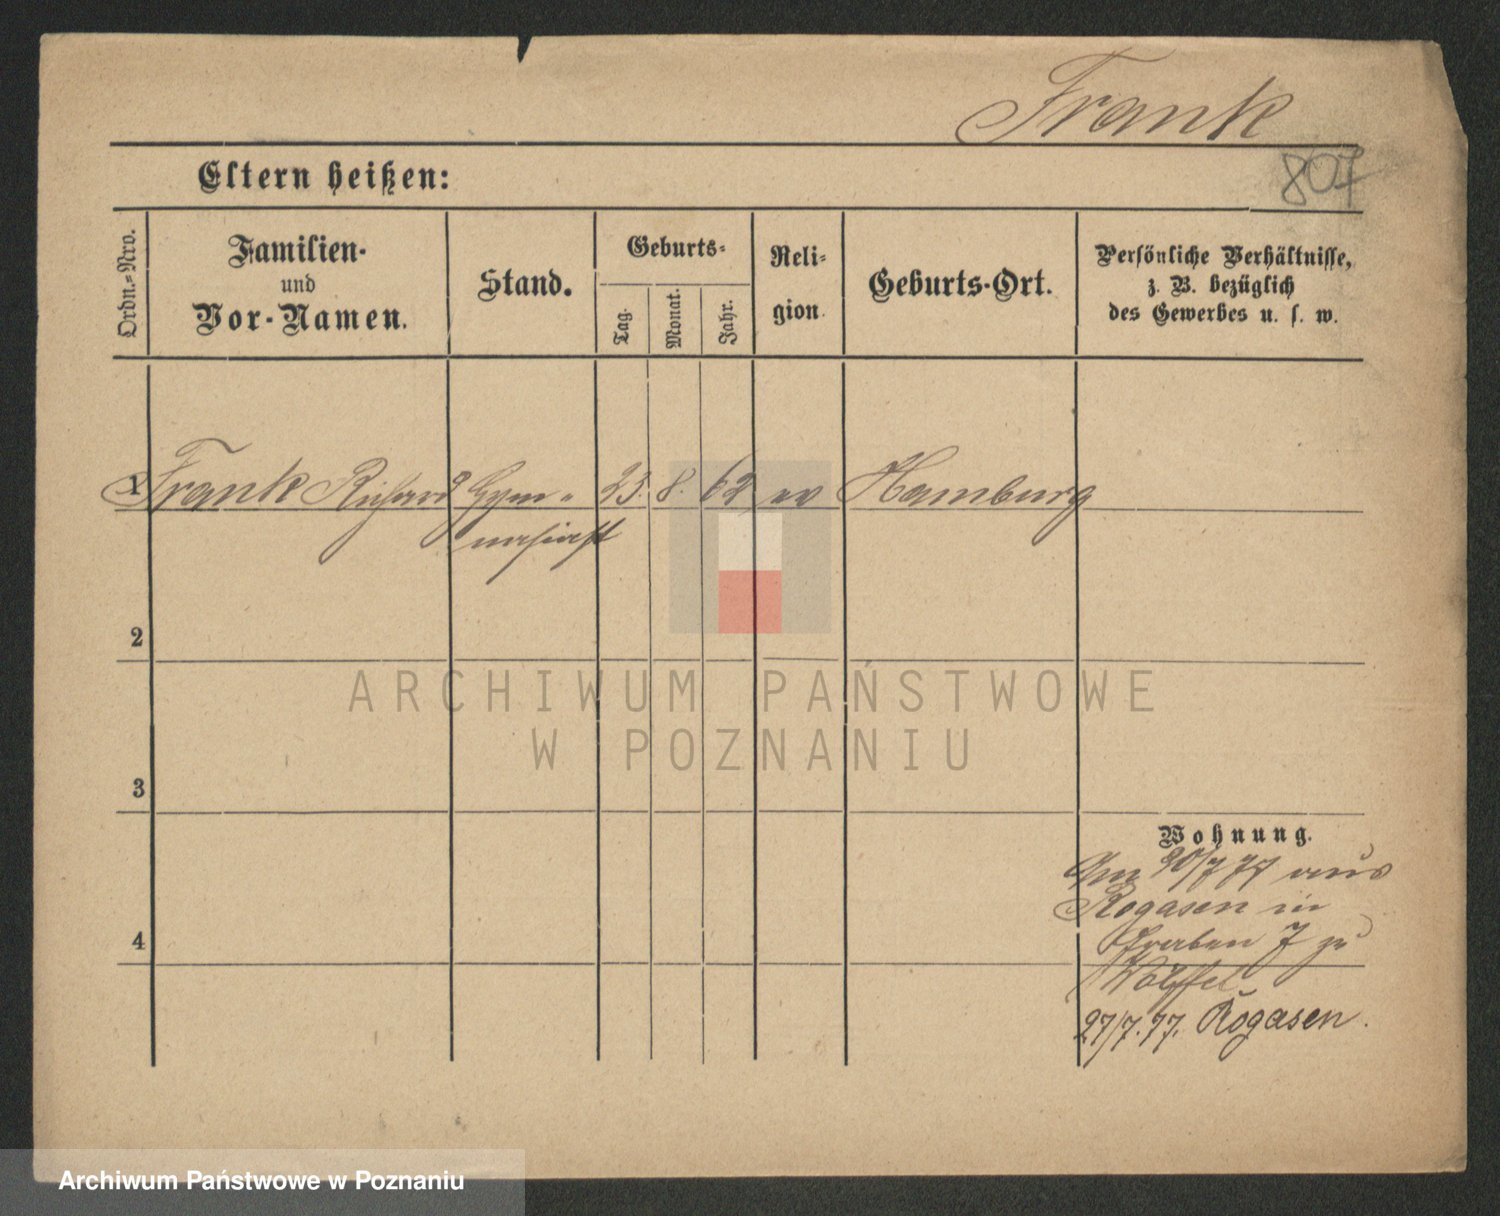 Frank
807
Eltern heißen:
Ordn.-Nro.
Familien-
und
Vor-Namen.
Stand.
Geburts-
Tag.
Monat.
Jahr.
Reli-
gion.
Geburts-Ort.
Persönliche Verhältnisse,
z. B. bezüglich
des Gewerbes u. s. w.
1 Frank Richard Gym- 23. 8. 62 ev Hamburg
nasiast
2
ARCHIWUM PAŃSTWOWE
W POZNANIU
3
Wohnung.
Am 20/7 77 aus
Rogasen in
Graben 7 zu
4
Wölffel
27/7.77. Rogasen.
Archiwum Państwowe w Poznaniu